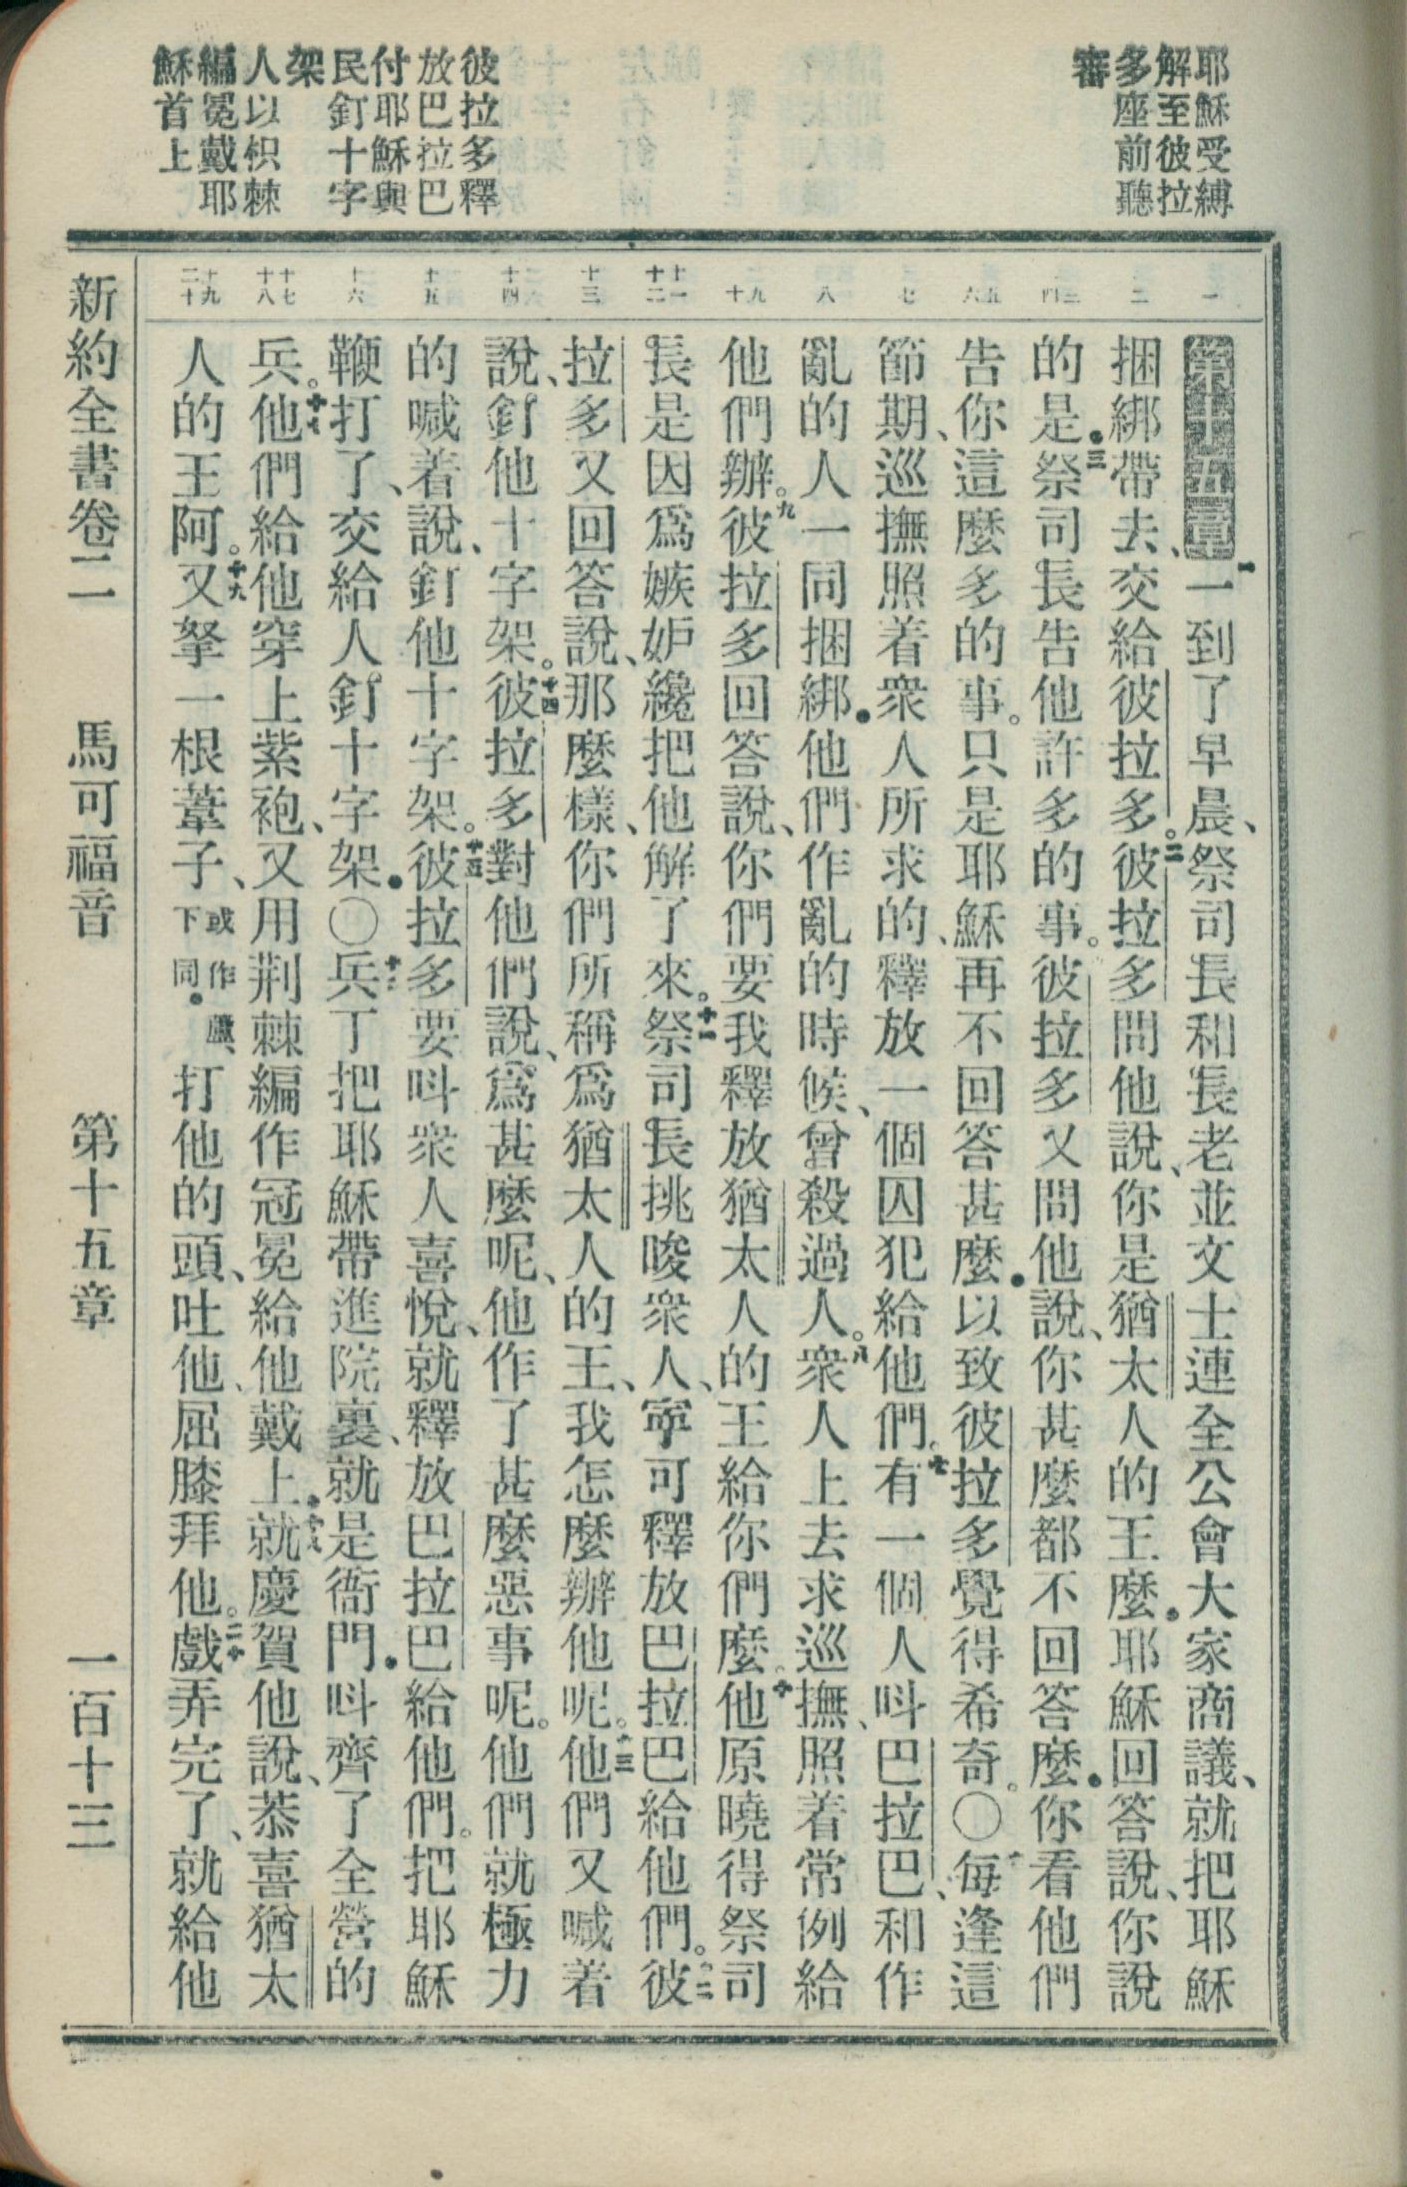 耶穌受縛
解至彼拉
多座前聽
審
彼拉多釋
放巴拉巴
付耶穌與
民釘十字
架
人以枳棘
編冕戴耶
穌首上
一
二
三四
五六
七
八
九十
十一十二
十三
十四
十五
十六
十七十八
十九二十
第十五章一一到了早晨、祭司長和長老並文士連全公會大家商議、就把耶穌
捆綁帶去、交給彼拉多。二彼拉多問他說、你是猶太人的王麼。耶穌回答說、你說
的是。三祭司長告他許多的事。彼拉多又問他說、你甚麼都不回答麼。你看他們
告你這麼多的事。只是耶穌再不回答甚麼。以致彼拉多覺得希奇。〇每逢這
節期、巡撫照着衆人所求的、釋放一個囚犯給他們。七有一個人呌巴拉巴、和作
亂的人一同捆綁。他們作亂的時候、曾殺過人。八衆人上去求巡撫、照着常例給
他們辦。九彼拉多回答說、你們要我釋放猶太人的王給你們麼。十他原曉得祭司
長是因爲嫉妒纔把他解了來。十一祭司長挑唆衆人、寧可釋放巴拉巴給他們。十二彼
拉多又回答說、那麼樣、你們所稱爲猶太人的王、我怎麼辦他呢。十三他們又喊着
說、釘他十字架。十四彼拉多對他們說、爲甚麼呢、他作了甚麼惡事呢。他們就極力
的喊着說、釘他十字架。十五彼拉多要呌衆人喜悅、就釋放巴拉巴給他們。把耶穌
鞭打了、交給人釘十字架。〇十六兵丁把耶穌帶進院裏、就是衙門。呌齊了全營的
兵。十七他們給他穿上紫袍、又用荆棘編作冠冕給他戴上。十八就慶賀他說、恭喜猶太
人的王阿。十九又拏一根葦子、或作蘆、下同。打他的頭、吐他、屈膝拜他。二十戲弄完了、就給他
新約全書卷二　馬可福音　第十五章　一百十三